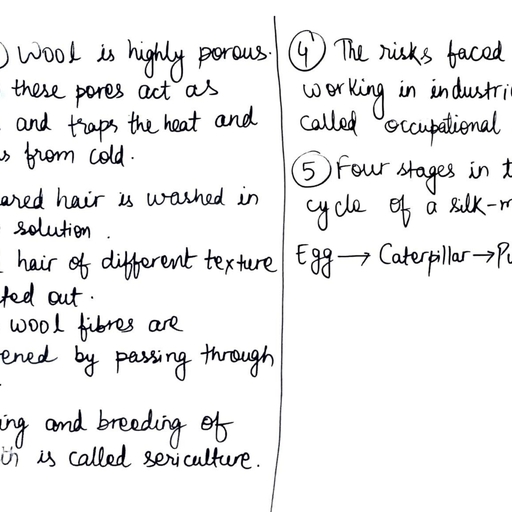 Wool is highly porous.
these pores act as
and traps the heat and
from cold.
hair is washed in
solution.
hair of different texture
out.
wool fibres are
by passing through
and breeding of
is called sericulture.
④ The risks faced
working in
called occupational
⑤ Four stages in
cycle of a
Egg → Caterpillar →